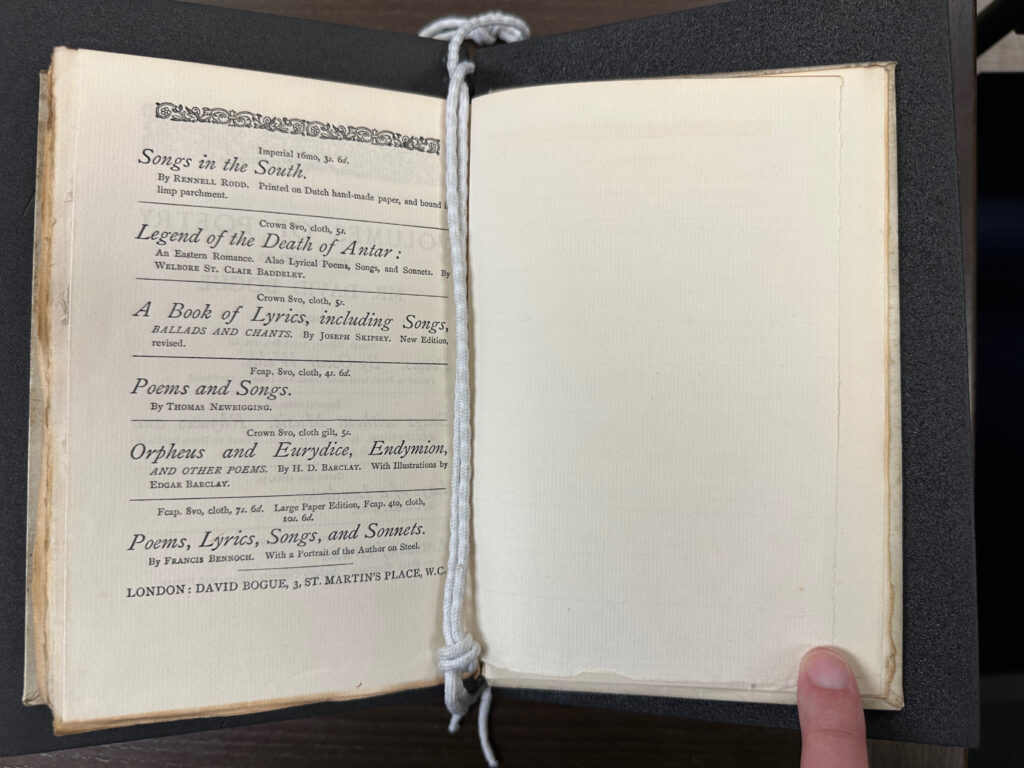 Imperial 16mo, 3s. 6d.
Songs in the South.
By RENNELL RODD. Printed on Dutch hand-made paper, and bound
limp parchment.
Crown 8vo, cloth, 5s.
Legend of the Death of Antar:
An Eastern Romance. Also Lyrical Poems, Songs, and Sonnets. By
WELBORE ST. CLAIR BADDELEY.
Crown 8vo, cloth, 5s.
A Book of Lyrics, including Songs,
BALLADS AND CHANTS. By JOSEPH SKIPSEY. New Edition,
revised.
Fcap. 8vo, cloth, 4s. 6d.
Poems and Songs.
By THOMAS NEWBIGGING.
Crown 8vo, cloth gilt, 5s.
Orpheus and Eurydice, Endymion,
AND OTHER POEMS. By H. D. BARCLAY. With Illustrations by
EDGAR BARCLAY.
Fcap. 8vo, cloth, 7s. 6d. Large Paper Edition, Fcap. 4to, cloth,
10s. 6d.
Poems, Lyrics, Songs, and Sonnets.
By FRANCIS BENNOCH. With a Portrait of the Author on Steel.
LONDON: DAVID BOGUE, 3, ST. MARTIN'S PLACE, W.C.